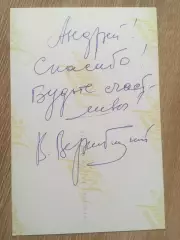 Андрей!
Спасибо!
Будьте счаст-
ливы
В. Вержбицкий